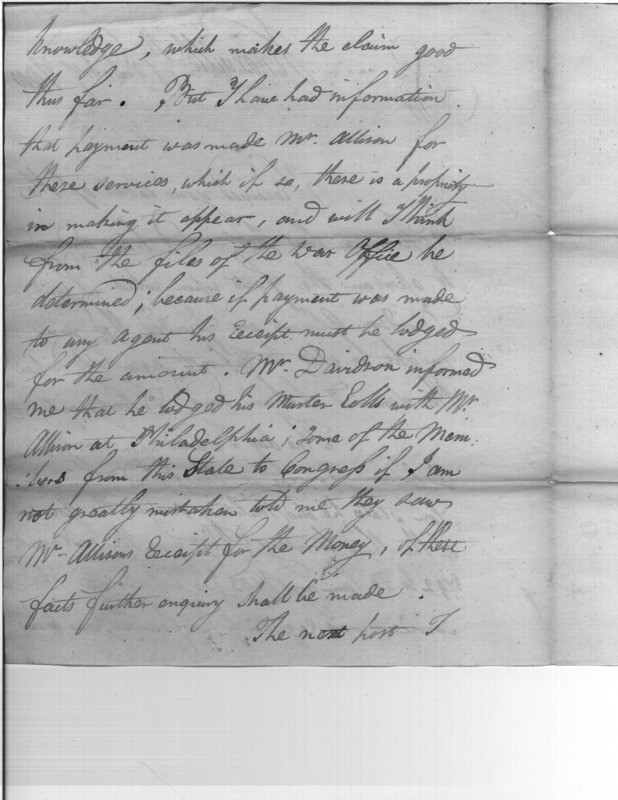 knowledge, which makes the claim good
thus far. But I have had information
that payment was made Mr. Allison for
these services, which if so, there is a propriety
in making it appear, and will I think
from the files of the War Office be
determined; because if payment was made
to any Agent his Receipt must be lodged
for the amount. Mr. Davidson informed
me that he lodged his Muster Rolls with Mr.
Allison at Philadelphia; some of the Mem-
:bers from this State to Congress if I am
not greatly mistaken told me they saw
Mr. Allisons Receipt for the Money, of these
facts further enquiry shall be made.
The next post I